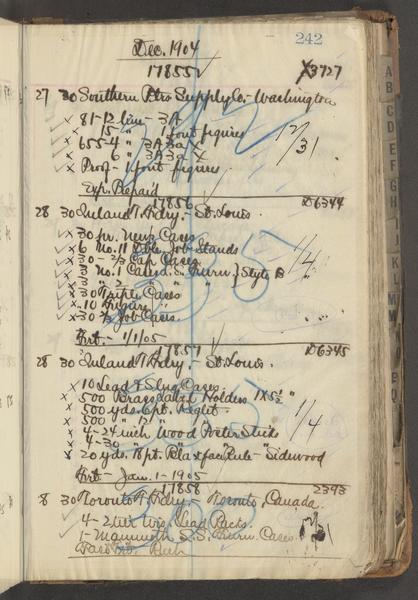 242
Dec. 1904
17855 X3727
27 30 Southern Ptrs Supply Co. - Washington
x 81-12 line - 3A
x 15 - " 1 font figures
x 655-4 " 3A 3a X
x 6 " 3A 3a X
x Proof - 1 font figures
1/31
Exp. Prepaid
17856 D6344
28 30 Inland T. Fdry. - St. Louis.
x 30 pr. News Cases
x 6 No. 11 Dble. Job Stands
x 30 - 2/3 Cap Cases
x 3 No. 1 Cases
x 3 " 2 " " " Style B
x 30 Triple Cases
x 10
x 30 2/3 Job Cases
1/4
Frt. - 1/1/05
17857 D6345
28 30 Inland T. Fdry. - St. Louis.
x 10 Lead & Slug Cases
x 500 Brass Label Holders 1 x 5½"
x 500 yds. 6pt. Reglet
x 500 " 12 " "
x 4 - 24 inch Wood Poster Sticks
x 4 - 30 " " " "
x 20 yds. 18pt. Blackface Rule - Sidewood
1/4
Frt - Jan. 1 - 1905
17858 2393
8 30 Toronto T. Fdry - Toronto, Canada.
4 - Lead Racks
1 - Mammoth S.S. Cases
Rush
A
B
C
D
E
F
G
H
I
J
K
L
M
W